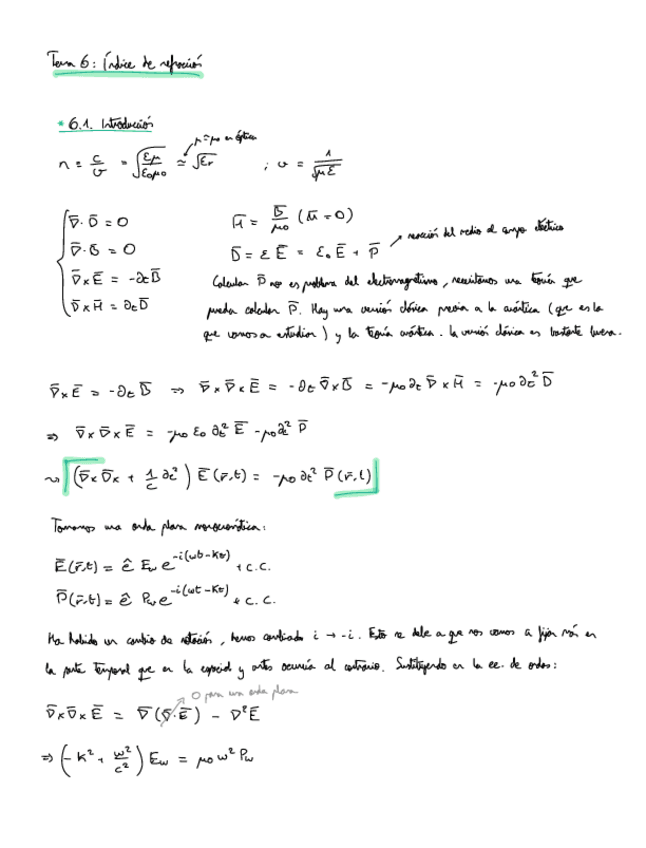 Tema 6: Índice de refracción
* 6.1. Introducción
μ≈μ₀ en óptica
n = c/v = √(εμ/ε₀μ₀) ≃ √εr ; v = 1/√(με)
∇̄·D̄ = 0
∇̄·B̄ = 0
∇̄×Ē = -∂tB̄
∇̄×H̄ = ∂tD̄
H̄ = B̄/μ₀ (M̄=0)
D̄ = εĒ = ε₀Ē + P̄ → reacción del medio al campo eléctrico
Calcular P̄ no es problema del electromagnetismo, necesitamos una teoría que
pueda calcular P̄. Hay una versión clásica previa a la cuántica (que es la
que vamos a estudiar) y la teoría cuántica. La versión clásica es bastante buena.
∇̄×Ē = -∂tB̄ ⇒ ∇̄×∇̄×Ē = -∂t∇̄×B̄ = -μ₀∂t∇̄×H̄ = -μ₀∂t²D̄
⇒ ∇̄×∇̄×Ē = -μ₀ε₀∂t²Ē - μ₀∂t²P̄
⇝ (∇̄×∇̄× + 1/c ∂t²) Ē(r̄,t) = -μ₀∂t²P̄(r̄,t)
Tomamos una onda plana monocromática:
Ē(r̄,t) = ê Eω e^-i(ωt-kz) + c.c.
P̄(r̄,t) = ê Pω e^-i(ωt-kz) + c.c.
Ha habido un cambio de notación, hemos cambiado i → -i. Esto se debe a que nos vamos a fijar más en
la parte temporal que en la espacial y antes ocurría al contrario. Sustituyendo en la ec. de ondas:
0 para una onda plana
∇̄×∇̄×Ē = ∇̄(∇̄·Ē) - ∇²Ē
⇒ (-k² + ω²/c²) Eω = μ₀ω²Pω